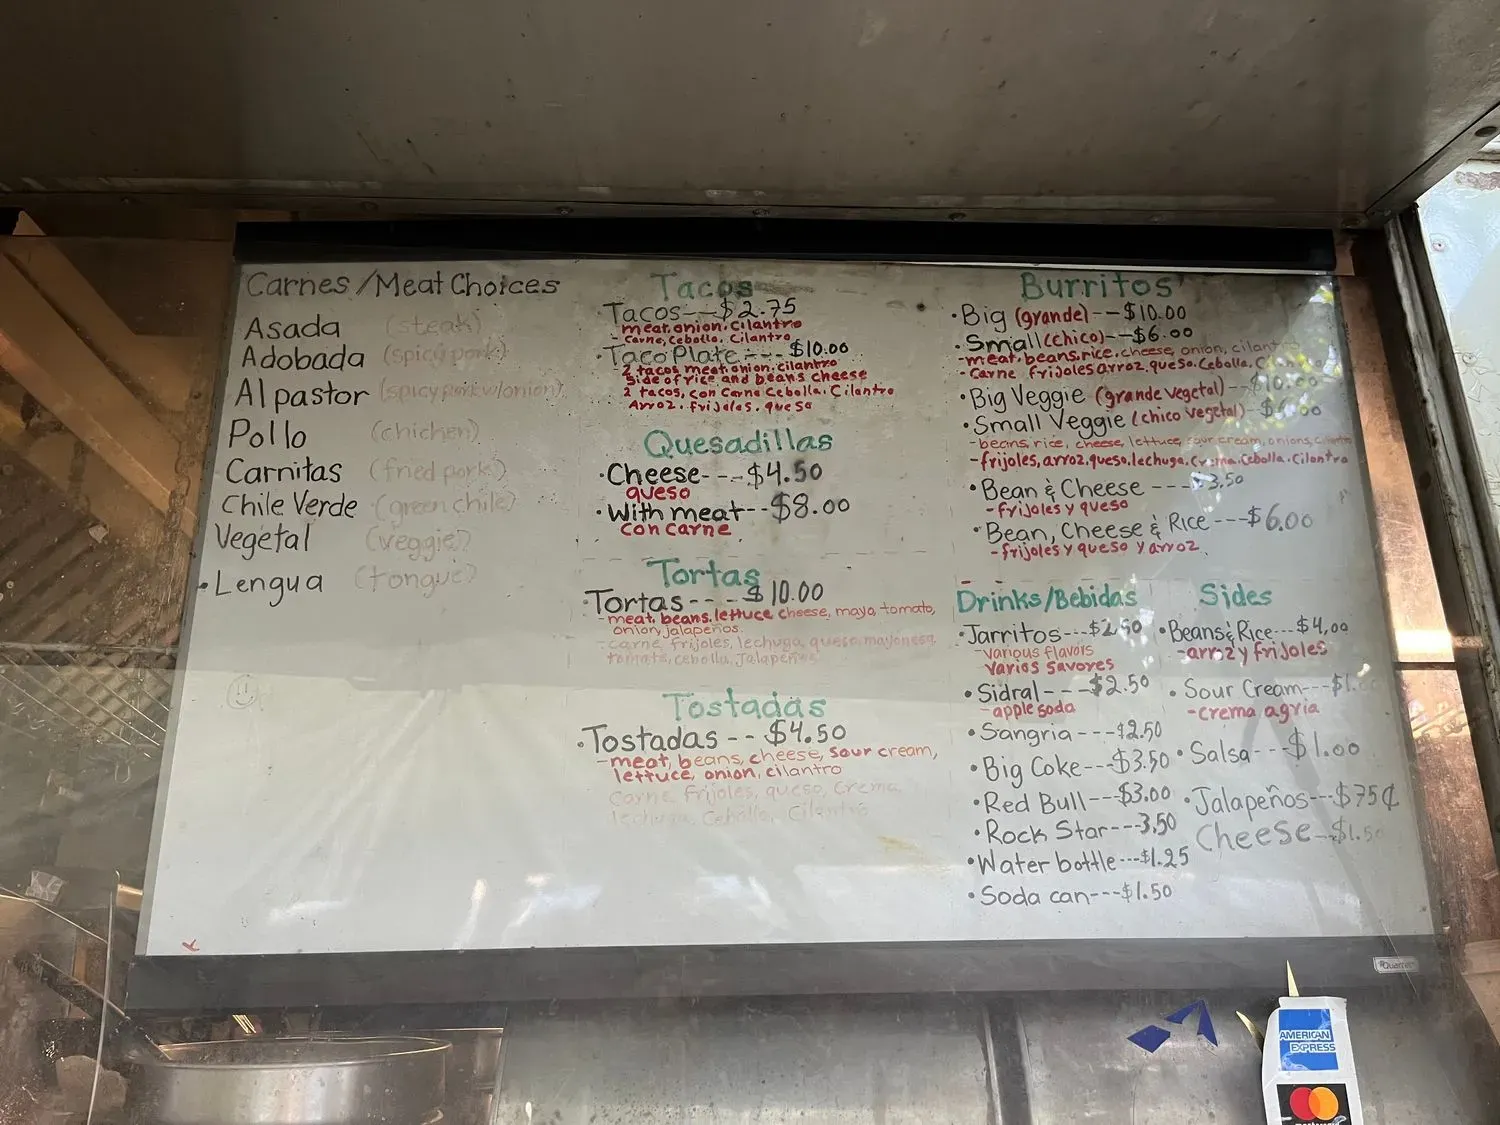 Carnes/Meat Choices
Asada (steak)
Adobada (spicy pork)
Al pastor (spicy pork w/onion)
Pollo (chicken)
Carnitas (fried pork)
Chile Verde (green chile)
Vegetal (veggie)
• Lengua (tongue)
Tacos
• Tacos---$2.75
- meat, onion, cilantro
- carne, cebolla, cilantro
• Taco Plate --- $10.00
- 2 tacos meat, onion, cilantro
side of rice and beans cheese
2 tacos, con carne cebolla, cilantro
Arroz, frijoles, queso
Quesadillas
• Cheese---$4.50
queso
• With meat--$8.00
con carne
Tortas
• Tortas----$10.00
- meat, beans, lettuce cheese, mayo, tomato,
onion, jalapeños.
- carne, frijoles, lechuga, queso, mayonesa,
tomate, cebolla, Jalapeños
Tostadas
• Tostadas -- $4.50
- meat, beans, cheese, sour cream,
lettuce, onion, cilantro
Carne, frijoles, queso, Crema
lechuga, Cebolla, Cilantro
Burritos
• Big (grande)--$10.00
• Small (chico)--$6.00
- meat, beans, rice, cheese, onion, cilantro
- Carne frijoles arroz, queso, Cebolla,
• Big Veggie (grande vegetal)--$10.00
• Small Veggie (chico vegetal)-
- beans, rice, cheese, lettuce, sour cream, onions, cilantro
- frijoles, arroz, queso, lechuga, Crema, Cebolla, Cilantro
• Bean & Cheese ---$3.50
- frijoles y queso
• Bean, Cheese & Rice ---$6.00
- frijoles y queso y arroz
Drinks/Bebidas
• Jarritos---$2.50
- various flavors
varios savores
• Sidral----$2.50
- apple soda
• Sangria---$2.50
• Big Coke---$3.50
• Red Bull---$3.00
• Rock Star---3.50
• Water bottle---$1.25
• Soda can---$1.50
Sides
• Beans & Rice---$4.00
- arroz y frijoles
• Sour Cream---
- crema agria
• Salsa---$1.00
• Jalapeños---$75¢
Cheese--$1.50
Quartet
AMERICAN
EXPRESS